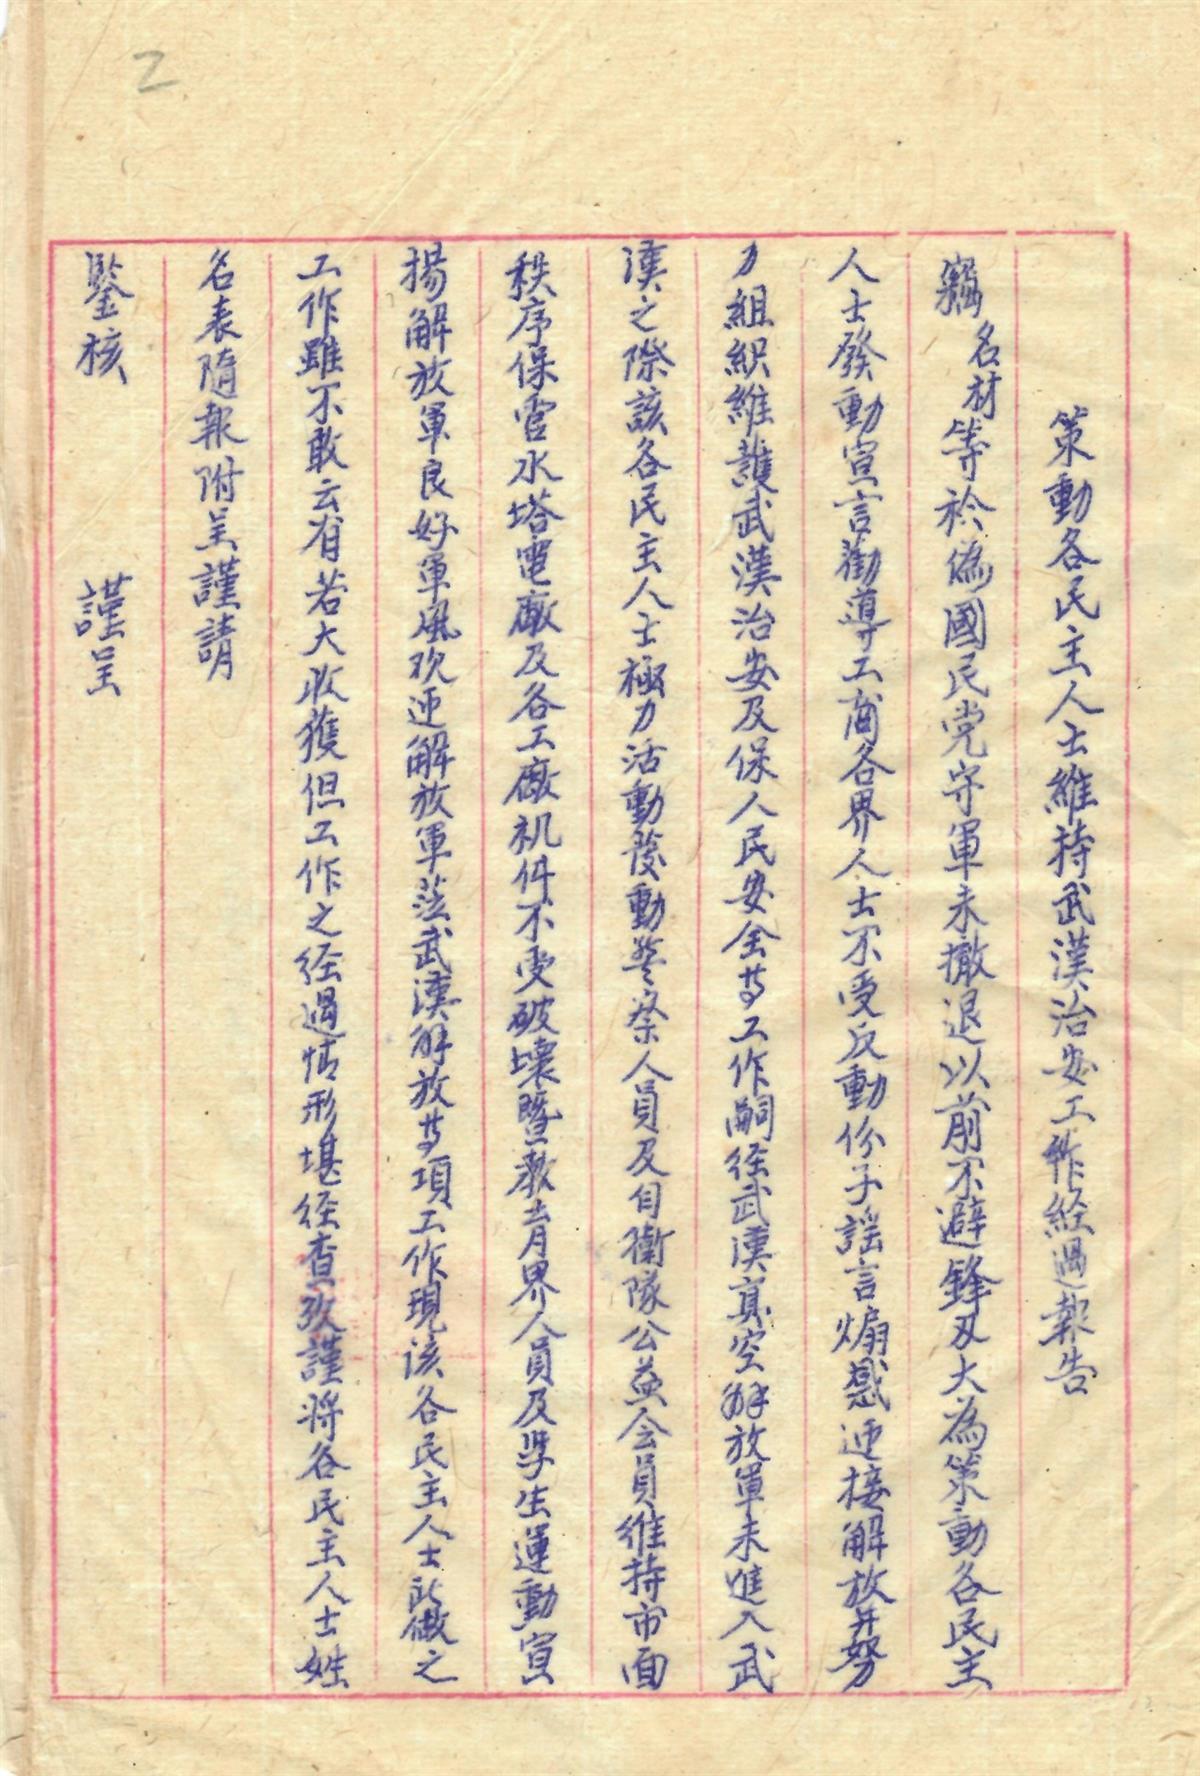 2
策動各民主人士維持武漢治安工作経過報告
竊名材等於偽國民党守軍未撤退以前不避鋒刃大為策動各民主
人士發動宣言勸導工商各界人士不受反動份子謡言煽惑迎接解放并努
力組织維護武漢治安及保人民安全等工作嗣经武漢真空解放軍未進入武
漢之際該各民主人士極力活動發動警察人員及自衛隊公益会員維持市面
秩序保管水塔電廠及各工廠机件不受破壞暨教育界人員及学生運動宣
揚解放軍良好軍風欢迎解放軍蒞武漢解放等項工作現该各民主人士所做之
工作雖不敢云有若大收獲但工作之经過情形堪经查攷謹将各民主人士姓
名表隨報附呈謹請
鑒核　　謹呈